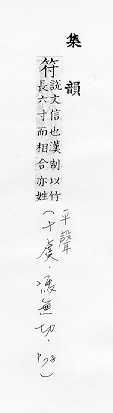 集韻
符
說文信也漢制以竹
長六寸而相合亦姓
平聲
(十虞．馮無切．